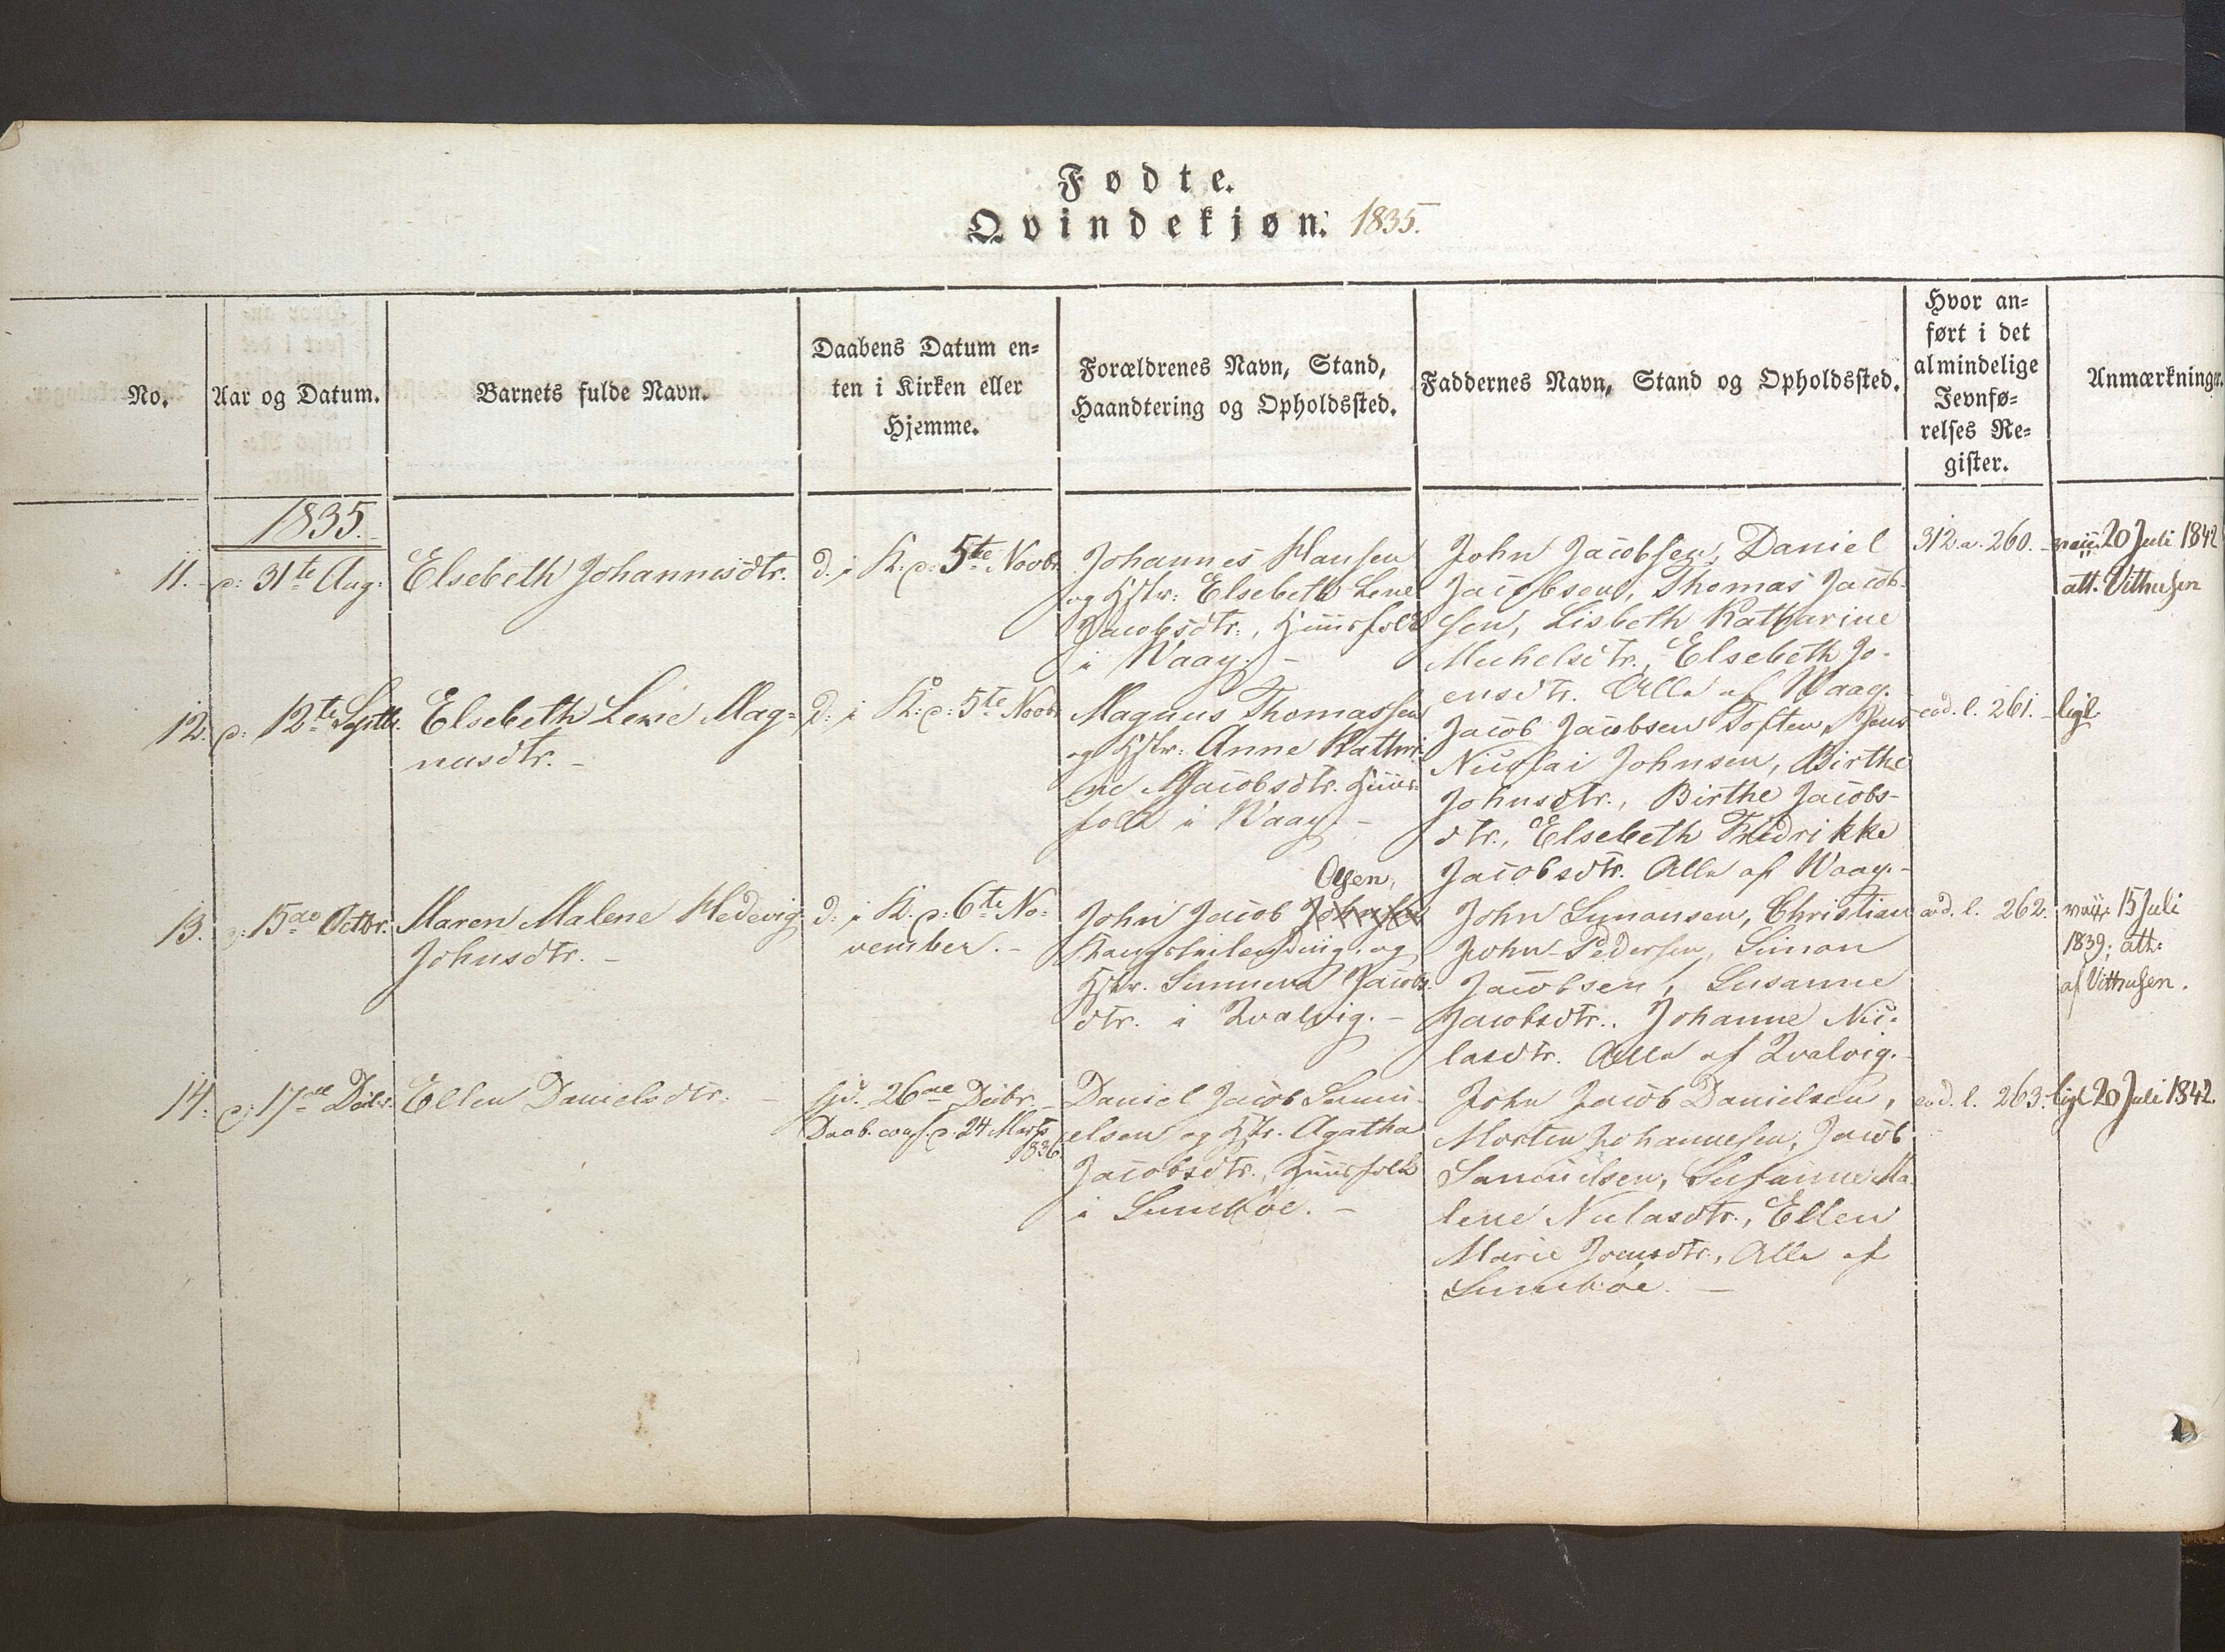 Fødte.
Qvindekjøn. 1835.
No.
Aar og Datum.
Barnets fulde Navn.
Daabens Datum en=
ten i Kirken eller
Hjemme.
Forældrenes Navn, Stand,
Haandtering og Opholdssted.
Faddernes Navn, Stand og Opholdssted.
Hvor an=
ført i det
almindelige
Jevnfø=
relses Re=
gister.
Anmærkninger.
1835.
11.
d: 31te Aug.
Elsebeth Johannisdtr.
D. i K. d: 5te Novbr
Johannes Hansen
og Hstr: Elsebeth Lene
Jacobsdtr., Huusfolk
i Waag. -
John Jacobsen, Daniel
Jacobsen, Thomas Jacob-
sen, Lisbeth Katharine
Michelsdtr., Elsebeth Jo-
ensdtr. Alle af Waag.
312. a. 260.
vacc. 20 Juli 1842
att. Vithusen
12.
d: 12te Septbr.
Elsebeth Lexie Mag=
nusdtr. -
D: i K: d: 5te Novbr
Magnus Thomassen
og Hstr: Anne Kathri
ne Jacobsdtr. Huus-
folk i Waag. -
Jacob Jacobsen Toften, Jens
Nicolai Johnsen, Birthe
Johnsdtr., Birthe Jacobs-
dtr., Elsebeth Fredrikke
Jacobsdtr. Alle af Waag. -
eod. l. 261.
ligl.
13.
d: 15de Octbr.
Maren Malene Hedevig
Johnsdtr. -
D: i K. d: 6te No=
vember. -
Olsen,
John Jacob Johnsen
og
Hstr. Sunneva Jacobs-
dtr. i Qvalvig. -
John Simonsen, Christian
John Pedersen, Simon
Jacobsen, Susanne
Jacobsdtr., Johanne Nic-
lasdtr. Alle af Qvalvig. -
eod. l. 262.
vacc. 15 Juli
1839; att:
af Vithusen.
14.
d: 17de Decbr.
Ellen Danielsdtr. -
hjd. 26de Decbr. -
Daab. conf. d. 24 Marts
1836
Daniel Jacob Samu-
elsen og Hstr. Agatha
Jacobsdtr., Huusfolk
i Sumbøe. -
John Jacob Danielsen,
Morten Johannesen, Jacob
Samuelsen, Susanne Ma
lene Niclasdtr., Ellen
Marie Joensdtr., Alle af
Sumbøe. -
eod. l. 263.
ligl. 20 Juli 1842.